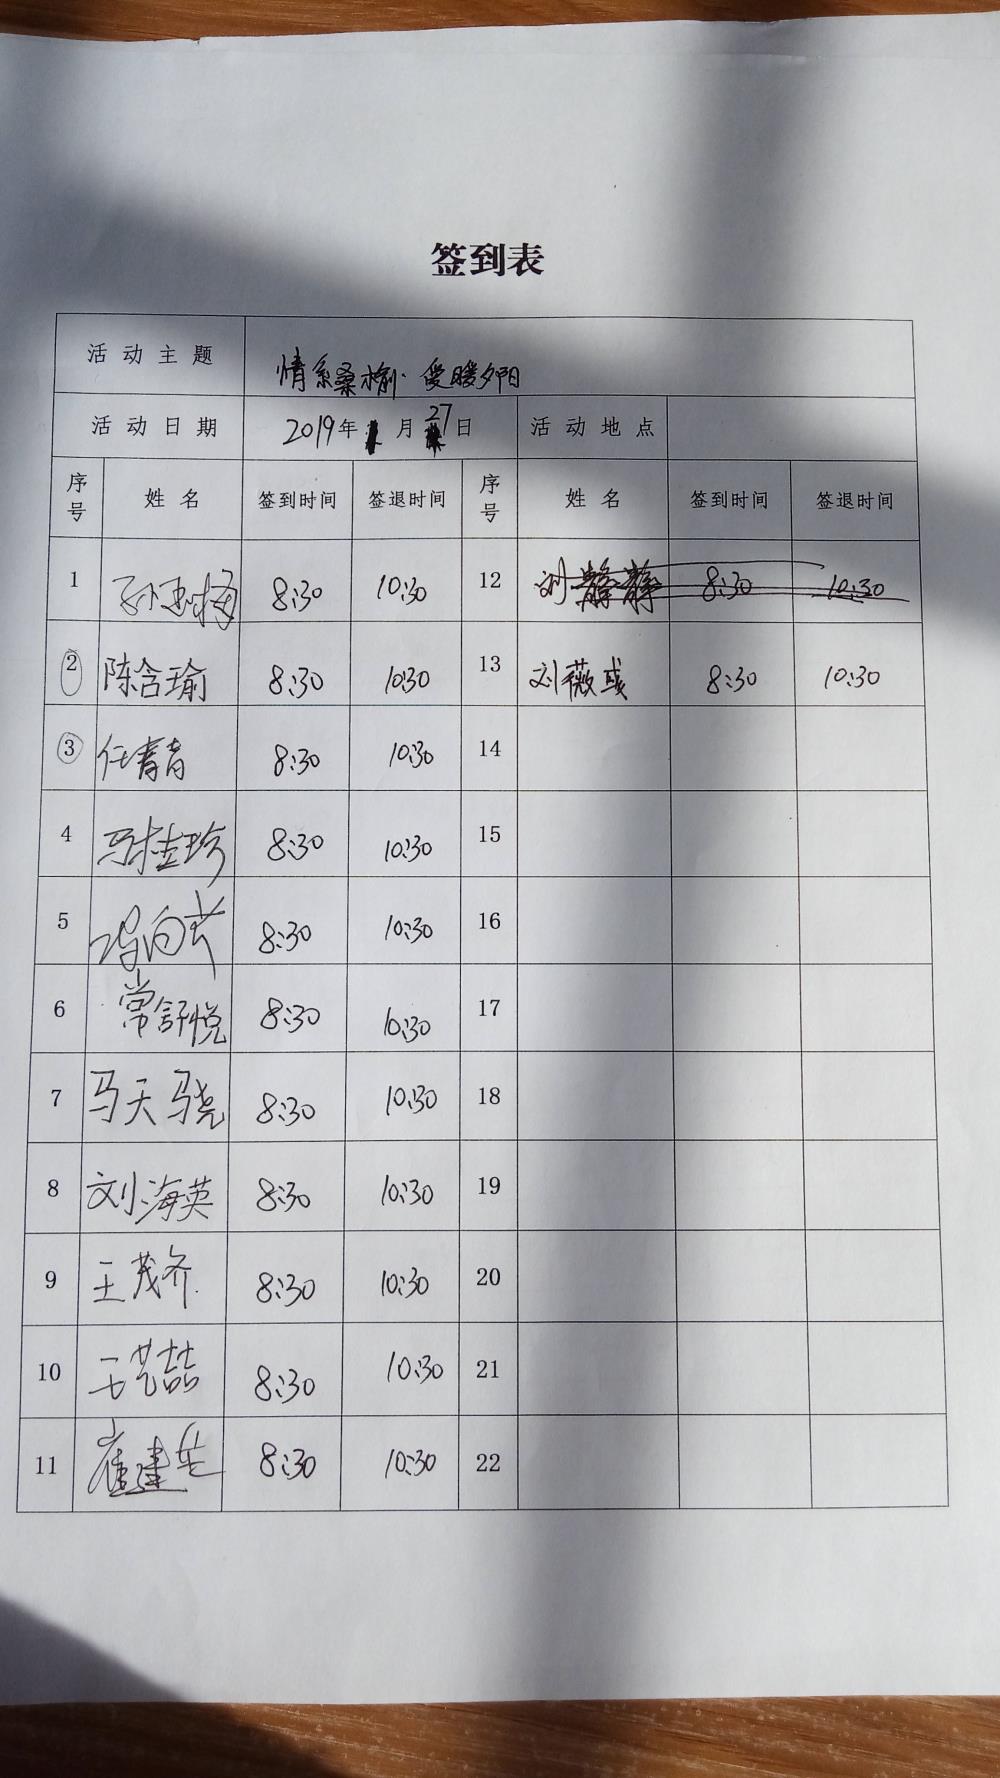 签到表
活动主题 情系桑榆·爱暖夕阳
活动日期 2019年 月27日 活动地点
序号 姓名 签到时间 签退时间 序号 姓名 签到时间 签退时间
1 8:30 10:30 12 刘静静 8:30 10:30
2 陈含瑜 8:30 10:30 13 刘薇彧 8:30 10:30
3 任青青 8:30 10:30 14
4 马桂珍 8:30 10:30 15
5 冯向艺 8:30 10:30 16
6 常舒悦 8:30 10:30 17
7 马天骁 8:30 10:30 18
8 刘海英 8:30 10:30 19
9 王茂齐 8:30 10:30 20
10 王艺喆 8:30 10:30 21
11 崔建生 8:30 10:30 22